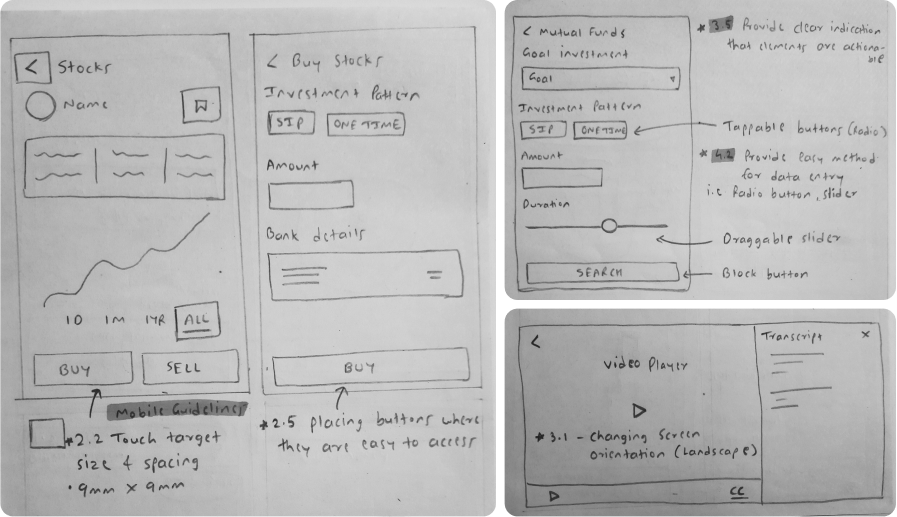 < Stocks
Name
1D 1M 1YR ALL
BUY SELL
Mobile Guidelines
*2.2 Touch target
size & spacing
• 9mm x 9mm
< Buy Stocks
Investment Pattern
SIP ONE TIME
Amount
Bank details
BUY
*2.5 placing buttons where
they are easy to access
< Mutual Funds
Goal investment
Goal
Investment Pattern
SIP ONE TIME
Amount
Duration
SEARCH
* 3.5 Provide clear indication
that elements are actiona-
ble
Tappable buttons (Radio)
* 4.2 Provide easy method
for data entry
i.e Radio button, slider
Draggable slider
Block button
<
Video Player
*3.1 - Changing Screen
orientation (Landscape)
CC
Transcript x